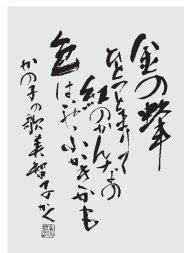 金の蜂
ひとつとまりて
紅のかんなの
色はいやふかきかも
かの子の歌 美智子かく